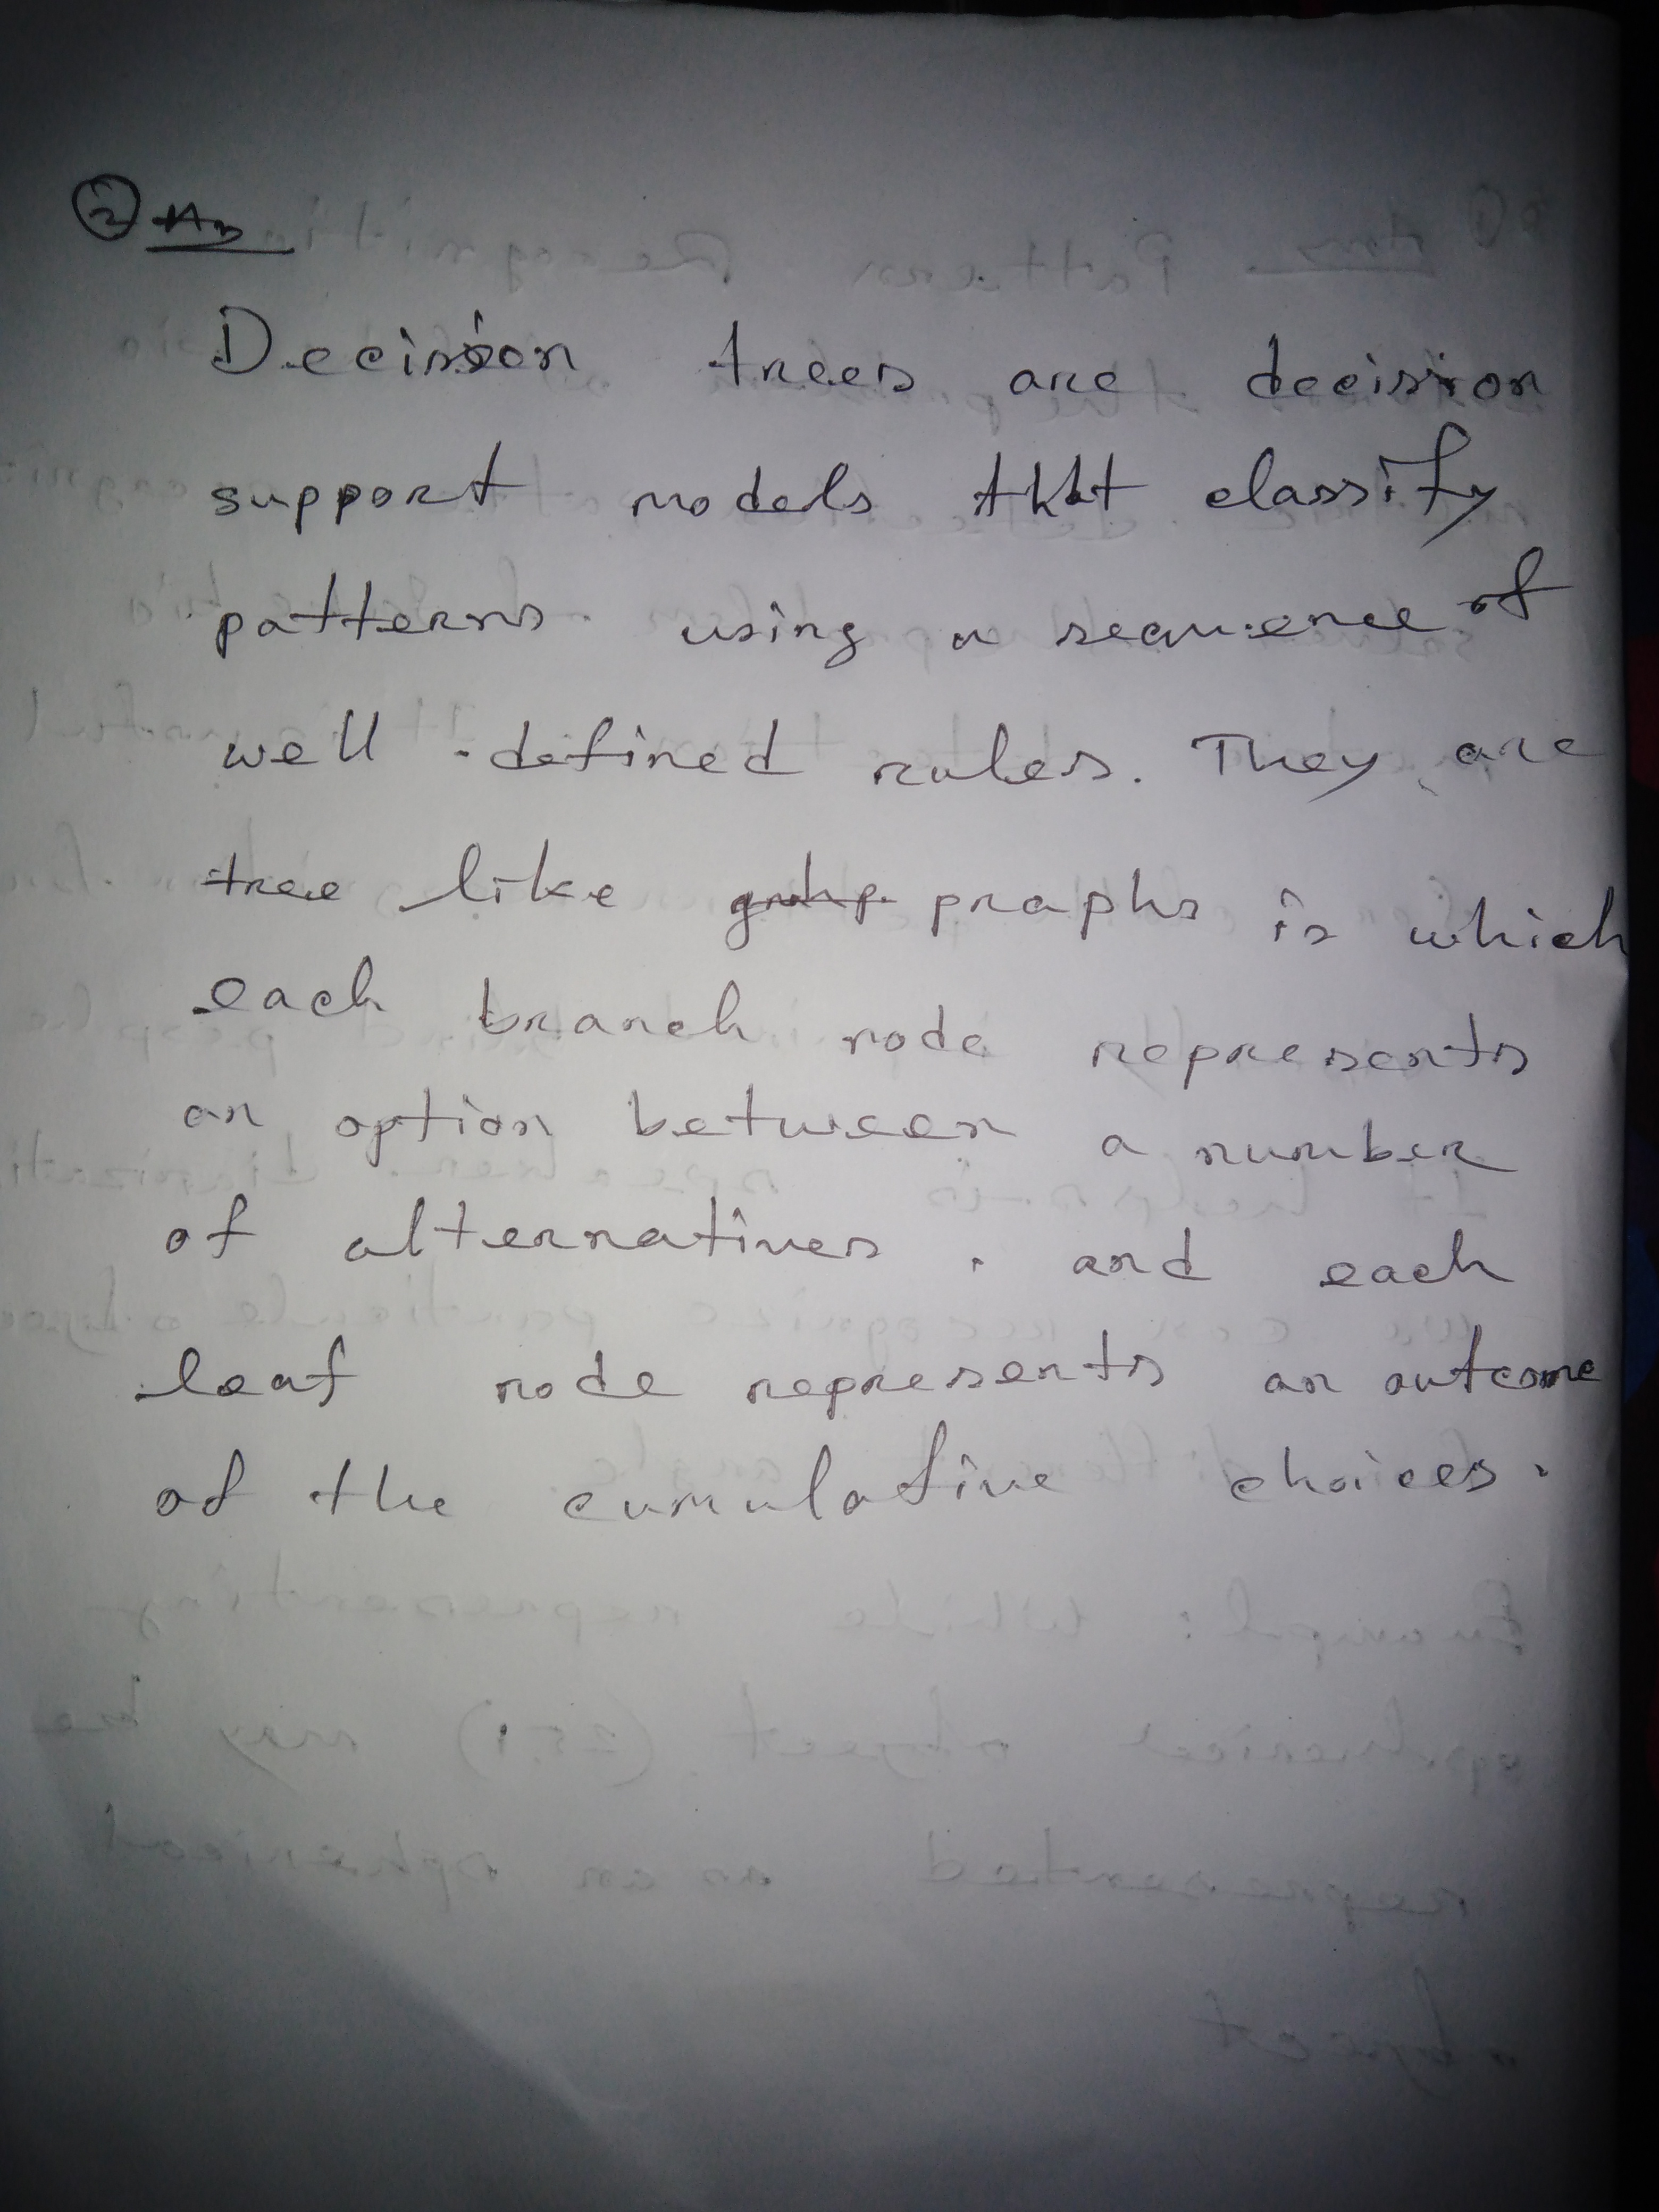 ② Ans
Decision trees are decision
support models that classify
patterns using a sequence of
well-defined rules. They are
tree like praphs is which
each branch node represents
an option between a number
of alternatives. and each
leaf node represents an outcome
of the cumulative choices.